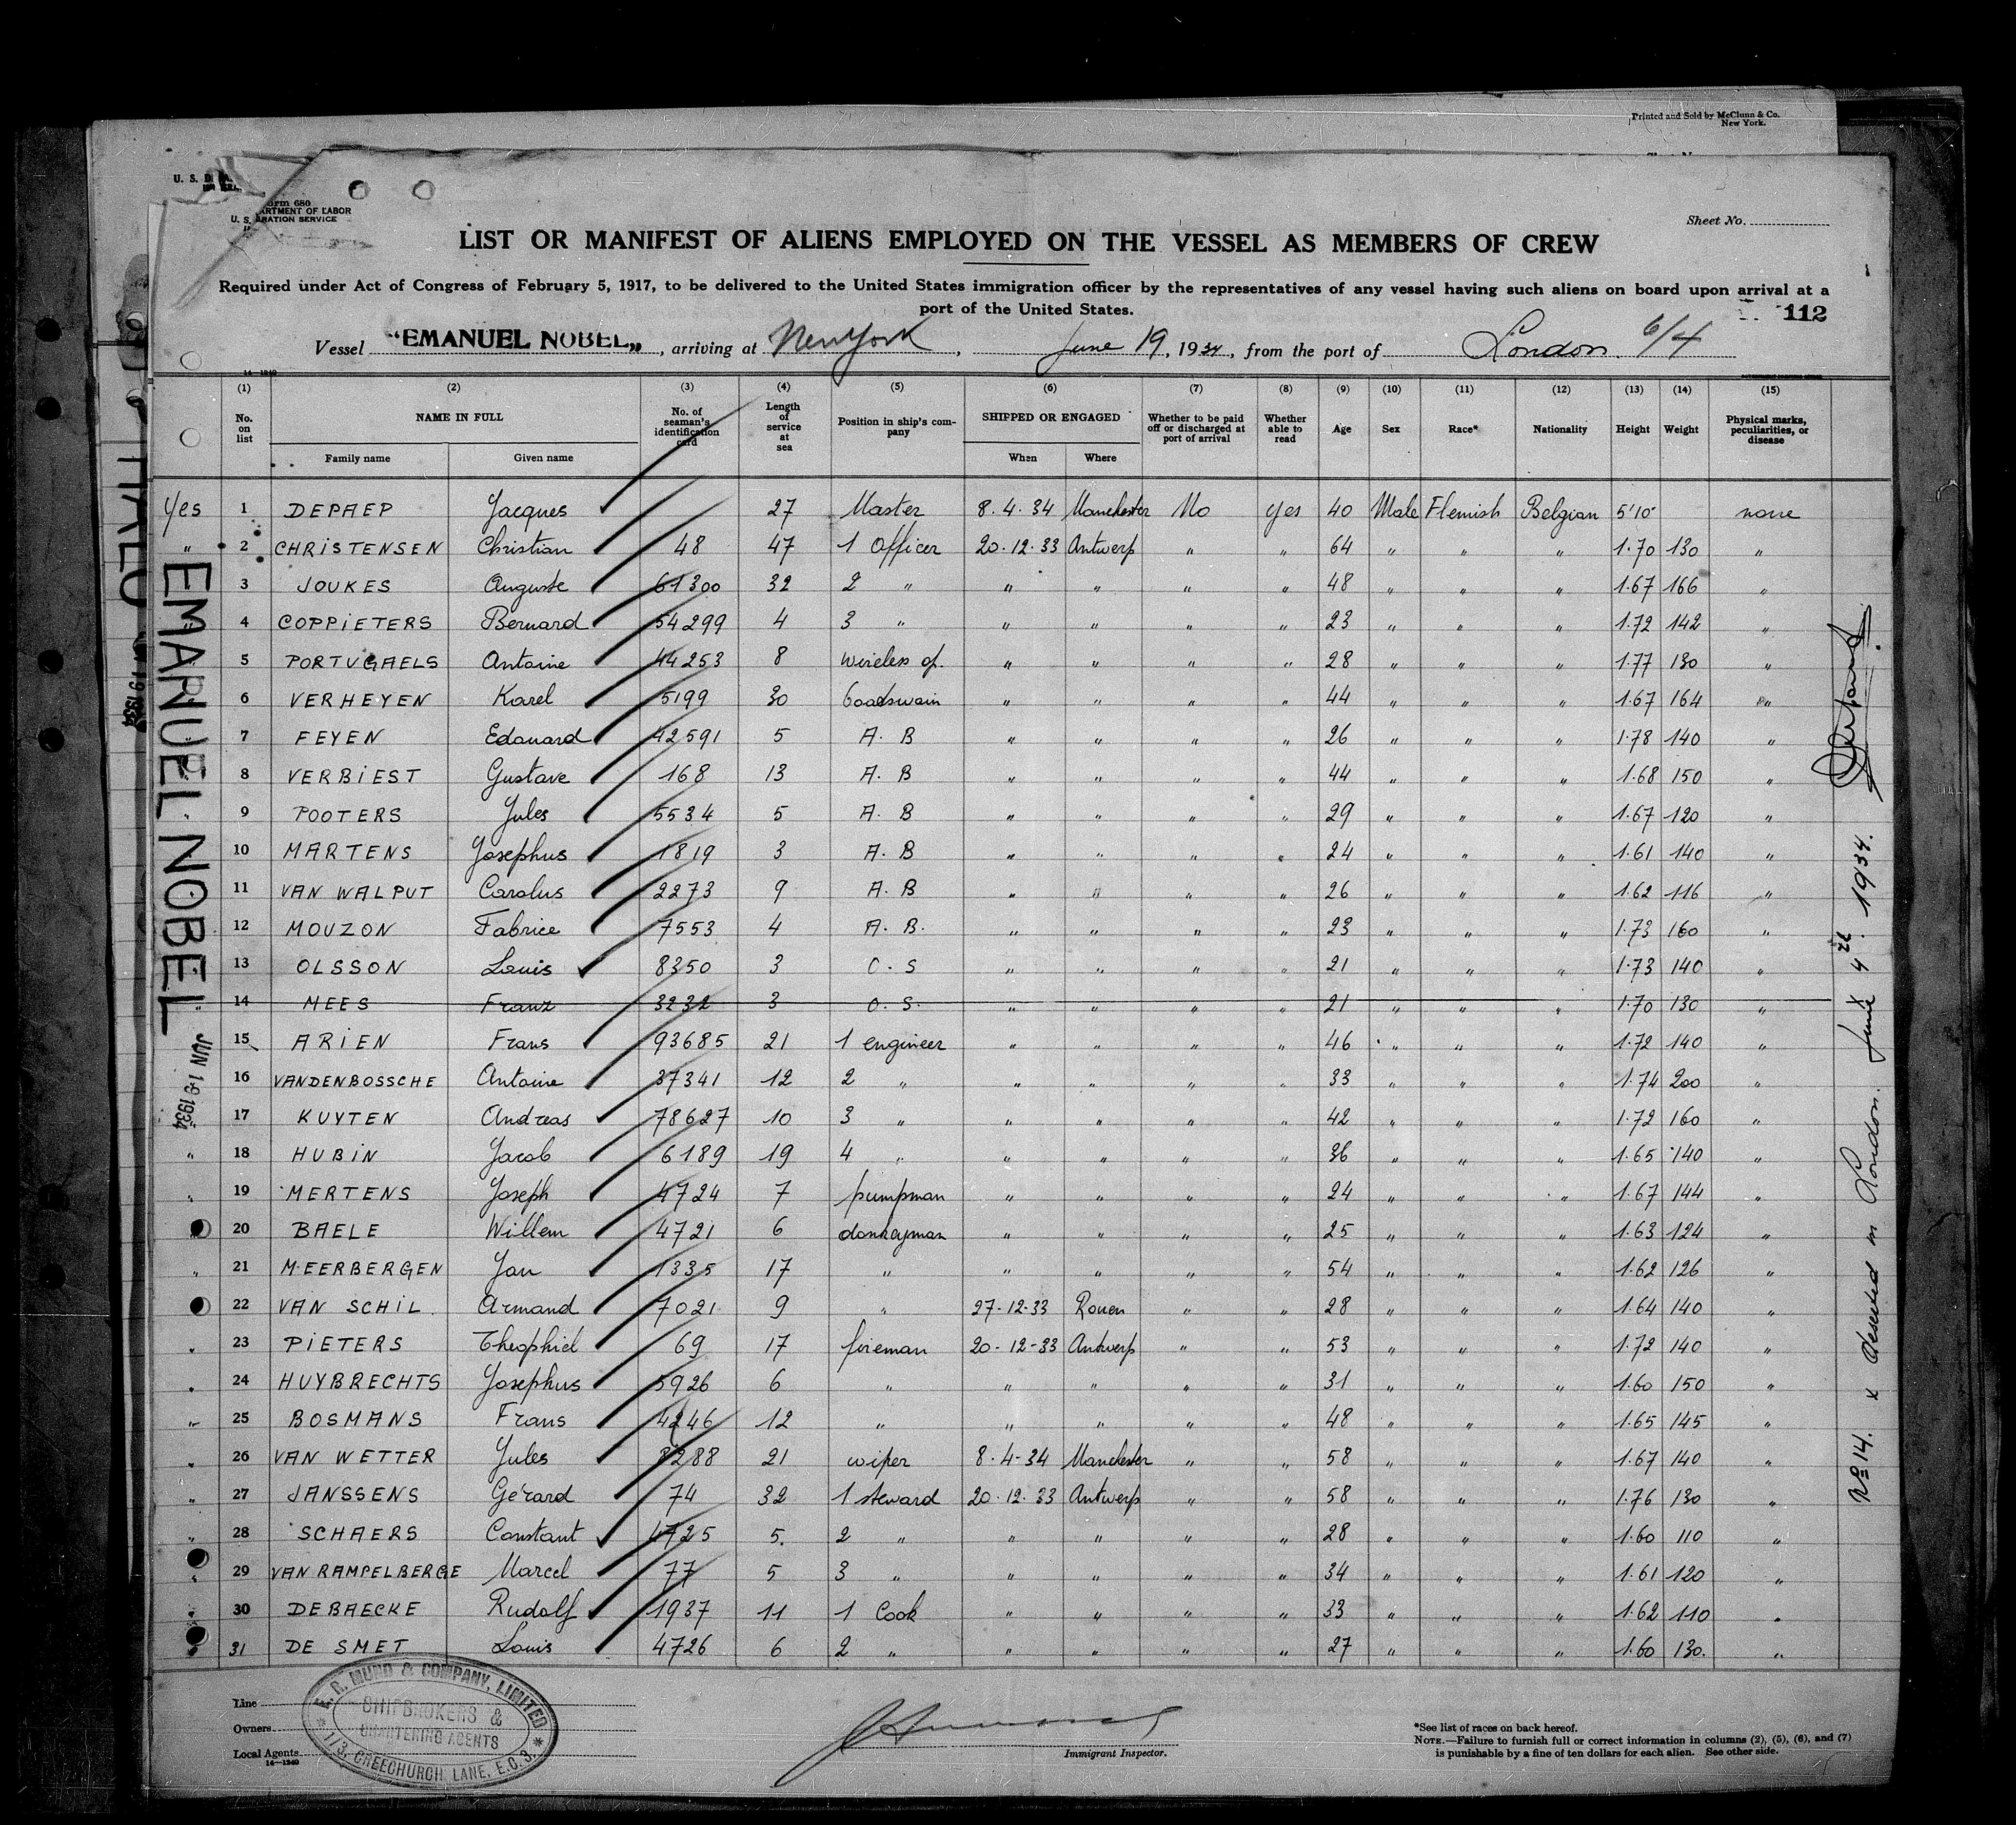 Printed and Sold by McClunn & Co.
New York.
U. S. D
Form 680
U. S. DEPARTMENT OF LABOR
IMMIGRATION SERVICE
Sheet No.
LIST OR MANIFEST OF ALIENS EMPLOYED ON THE VESSEL AS MEMBERS OF CREW
Required under Act of Congress of February 5, 1917, to be delivered to the United States immigration officer by the representatives of any vessel having such aliens on board upon arrival at a
port of the United States.
112
Vessel "EMANUEL NOBEL", arriving at New York, June 19, 1934, from the port of London. 6/4
(1) (2) (3) (4) (5) (6) (7) (8) (9) (10) (11) (12) (13) (14) (15)
No. on list NAME IN FULL Family name Given name No. of seaman's identification card Length of service at sea Position in ship's company SHIPPED OR ENGAGED When Where Whether to be paid off or discharged at port of arrival Whether able to read Age Sex Race* Nationality Height Weight Physical marks, peculiarities, or disease
Yes 1 DEPAEP Jacques 27 Master 8.4.34 Manchester No yes 40 Male Flemish Belgian 5'10" none
" 2 CHRISTENSEN Christian 48 47 1 Officer 20.12.33 Antwerp " " 64 " " " 1.70 130 "
3 JOUKES Auguste 61300 32 2 " " " " " 48 " " " 1.67 166 "
4 COPPIETERS Bernard 54299 4 3 " " " " " 23 " " " 1.72 142 "
5 PORTUGAELS Antoine 44253 8 wireless op. " " " " 28 " " " 1.77 130 "
6 VERHEYEN Karel 5199 30 boatswain " " " " 44 " " " 1.67 164 "
7 FEYEN Edouard 42591 5 A. B " " " " 26 " " " 1.78 140 "
8 VERBIEST Gustave 168 13 A. B " " " " 44 " " " 1.68 150 "
9 POOTERS Jules 5534 5 A. B " " " " 29 " " " 1.67 120 "
10 MARTENS Josephus 1819 3 A. B " " " " 24 " " " 1.61 140 "
11 VAN WALPUT Carolus 2273 9 A. B " " " " 26 " " " 1.62 116 "
12 MOUZON Fabrice 7553 4 A. B. " " " " 23 " " " 1.73 160 "
13 OLSSON Louis 8350 3 O. S " " " " 21 " " " 1.73 140 "
14 MEES Franz 3232 3 O. S. " " " " 21 " " " 1.70 130 "
15 ARIEN Frans 93685 21 1 engineer " " " " 46 " " " 1.72 140 "
16 VANDENBOSSCHE Antoine 37341 12 2 " " " " " 33 " " " 1.74 200 "
17 KUYTEN Andreas 78627 10 3 " " " " " 42 " " " 1.72 160 "
" 18 HUBIN Jacob 6189 19 4 " " " " " 36 " " " 1.65 140 "
" 19 MERTENS Joseph 4724 7 pumpman " " " " 24 " " " 1.67 144 "
20 BAELE Willem 4721 6 donkeyman " " " " 25 " " " 1.63 124 "
" 21 MEERBERGEN Jan 1335 17 " " " " " 54 " " " 1.62 126 "
22 VAN SCHIL Armand 7021 9 " 27-12-33 Rouen " " 28 " " " 1.64 140 "
" 23 PIETERS Theophiel 69 17 fireman 20-12-33 Antwerp " " 53 " " " 1.72 140 "
" 24 HUYBRECHTS Josephus 5926 6 " " " " " 31 " " " 1.60 150 "
" 25 BOSMANS Frans 4246 12 " " " " " 48 " " " 1.65 145 "
" 26 VAN WETTER Jules 8288 21 wiper 8.4-34 Manchester " " 58 " " " 1.67 140 "
" 27 JANSSENS Gérard 74 32 1 steward 20.12.33 Antwerp " " 58 " " " 1.76 130 "
" 28 SCHAERS Constant 4725 5. 2 " " " " " 28 " " " 1.60 110 "
" 29 VAN RAMPELBERGE Marcel 77 5 3 " " " " " 34 " " " 1.61 120 "
" 30 DEBAECKE Rudolf 1937 11 1 Cook " " " " 33 " " " 1.62 110 "
" 31 DE SMET Louis 4726 6 2 " " " " " 27 " " " 1.60 130. "
EMANUEL NOBEL
JUN 19 1934
No 14. x deserted in London. June 4th 1934.
Line
Owners
Local Agents
14—1240
E. R. MUND & COMPANY, LIMITED
SHIPBROKERS &
CHARTERING AGENTS
11/3, CREECHURCH LANE, E.C.3.
Immigrant Inspector.
*See list of races on back hereof.
NOTE.—Failure to furnish full or correct information in columns (2), (5), (6), and (7)
is punishable by a fine of ten dollars for each alien. See other side.